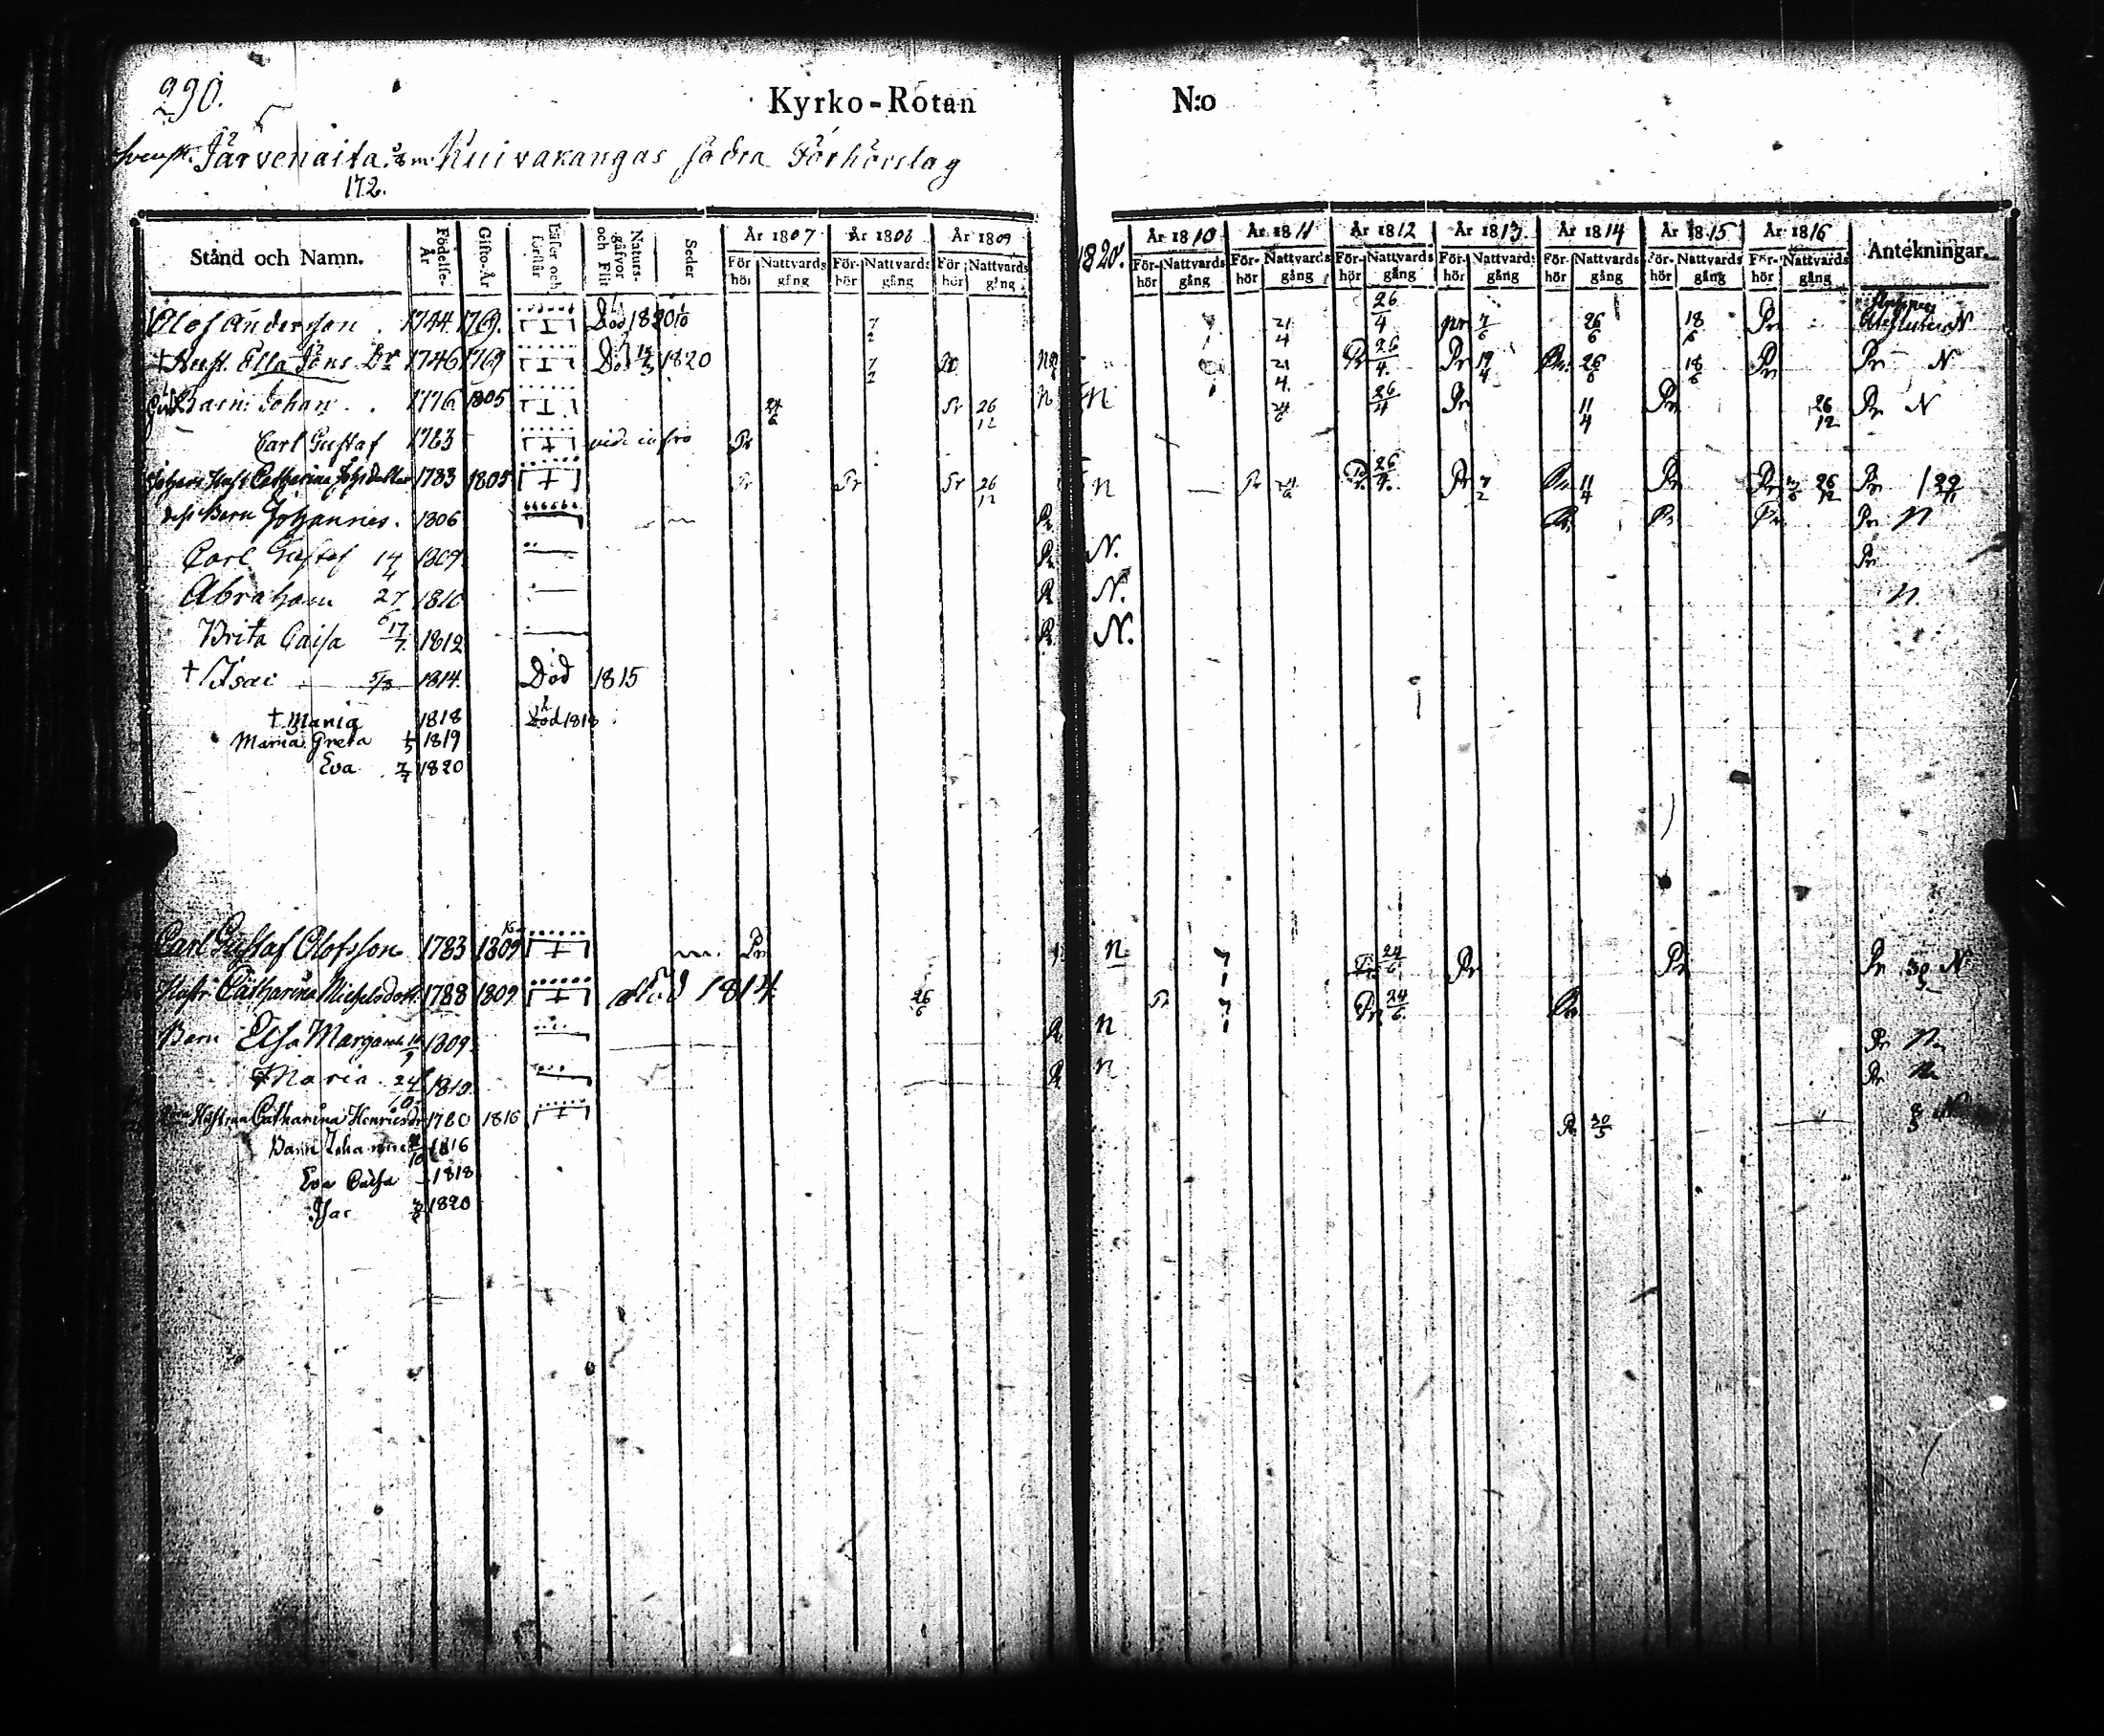 290.
Kyrko-Rotan N:o
Järvenaita Kuivakangas södra Förhörslag
172.
Stånd och Namn. Födelse-År Gifto-År Läser och förstår Naturs-gåfvor och Flit Seder År 1807 År 1808 År 1809 1820. År 1810 År 1811 År 1812 År 1813 År 1814 År 1815 År 1816 Antekningar.
För-hör Nattvards gång För-hör Nattvards gång För-hör Nattvards gång För-hör Nattvards gång För-hör Nattvards gång För-hör Nattvards gång För-hör Nattvards gång För-hör Nattvards gång För-hör Nattvards gång För-hör Nattvards gång
Olof Andersson 1744 1769. Död 7/2 21/4 26/4 pr 7/6 26/6 18/6 Pr N
† Hust. Ella Jöns Dr 1746 1769 Död 1820 7/2 21/4 Pr 26/4 Pr 19/4 26/6 18/6 Pr Pr N
Barn: Johan 1776 1805 24/6 Pr 26/12 N 24/6 26/4 Pr 11/4 Pr 26/12 Pr N
Carl Gustaf 1783 vide infra Pr
Johans Hust Catharina 1783 1805 Pr Pr Pr 26/12 n Pr 26/4 Pr 7/2 11/4 Pr Pr 26/12 Pr
dess Barn Johannes. 1806 Pr Pr Pr Pr n
Carl Gustaf 14/4 1809. N. Pr
Abraham 27/6 1810 N. n.
Brita Caisa 17/7 1812 N.
† Isac 5/3 1814. Död 1815
† Maria 1818 Död 1818
Maria Greta 1819
Eva 1820
Carl Gustaf Olofsson 1783 1809 Pr n 7/1 24/6 Pr Pr Pr N
Hustr Catharina Michelsdott. 1788 1809 död 1814. 26/6 Pr 7/1 Pr 24/6
Barn Elsa Margareta 1809. n Pr n
Maria 24/10 1810. n Pr n
Hustrun Catharina Henricsdr 1780 1816 30/5 N
Barn Johannes 1816
Eva Caisa 1818
Isac 1820